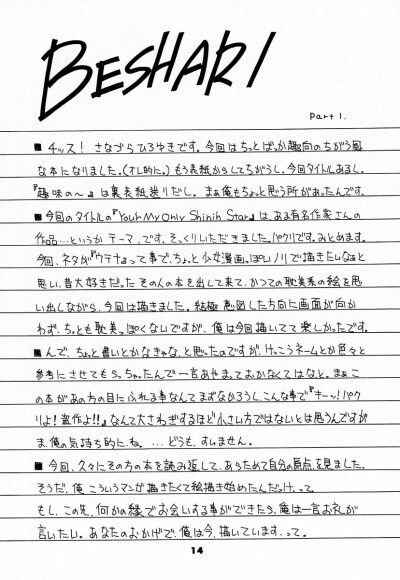 BESHARI
Part 1.
■チッス! さなづらひろゆきです。今回はちっとばっか趣向のちがう風
な本になりました。(オレ的に。)もう表紙からしてちがうし、今回タイトルあるし。
『趣味の〜』は裏表紙送りだし。まぁ俺もちょっと思う所があったんです。
■今回のタイトルの『Your My Only Shinin Star』は、ある有名作家さんの
作品…というかテーマ、です。そっくりいただきました。パクリです。みとめます。
今回、ネタが『ウテナ』って事で、ちょっと少女漫画っぽいノリで描きたいなぁと
思い、昔大好きだったその人の本を出して来て、かつての耽美系の絵を思
い出しながら、今回は描きました。結極意図した方向に画面が向か
わず、ちっとも耽美っぽくないですが、俺は今回描いてて楽しかったです。
■んで、ちょっと書いとかなきゃな、と思ったのですが、けっこうネームとか色々と
参考にさせてもらっちゃたんで一言あやまっておかなくてはなと。まぁこ
の本があの方の目にふれる事なんてまずなかろうし、こんな事で『キーッ!パク
リよ!盗作よ!!』なんて大さわぎするほど小さい方ではないとは思うんですが
ま、俺の気持ち的にね。…どうも、すいません。
■今回、久々にその方の本を読み返して、あらためて自分の原点を見ました。
そうだ、俺、こういうマンガ描きたくて絵描き始めたんだっけ。って。
もし、この先、何かの縁でお会いする事ができたら、俺は一言お礼が
言いたい。あなたのおかげで、俺は今、描いています。って。
14